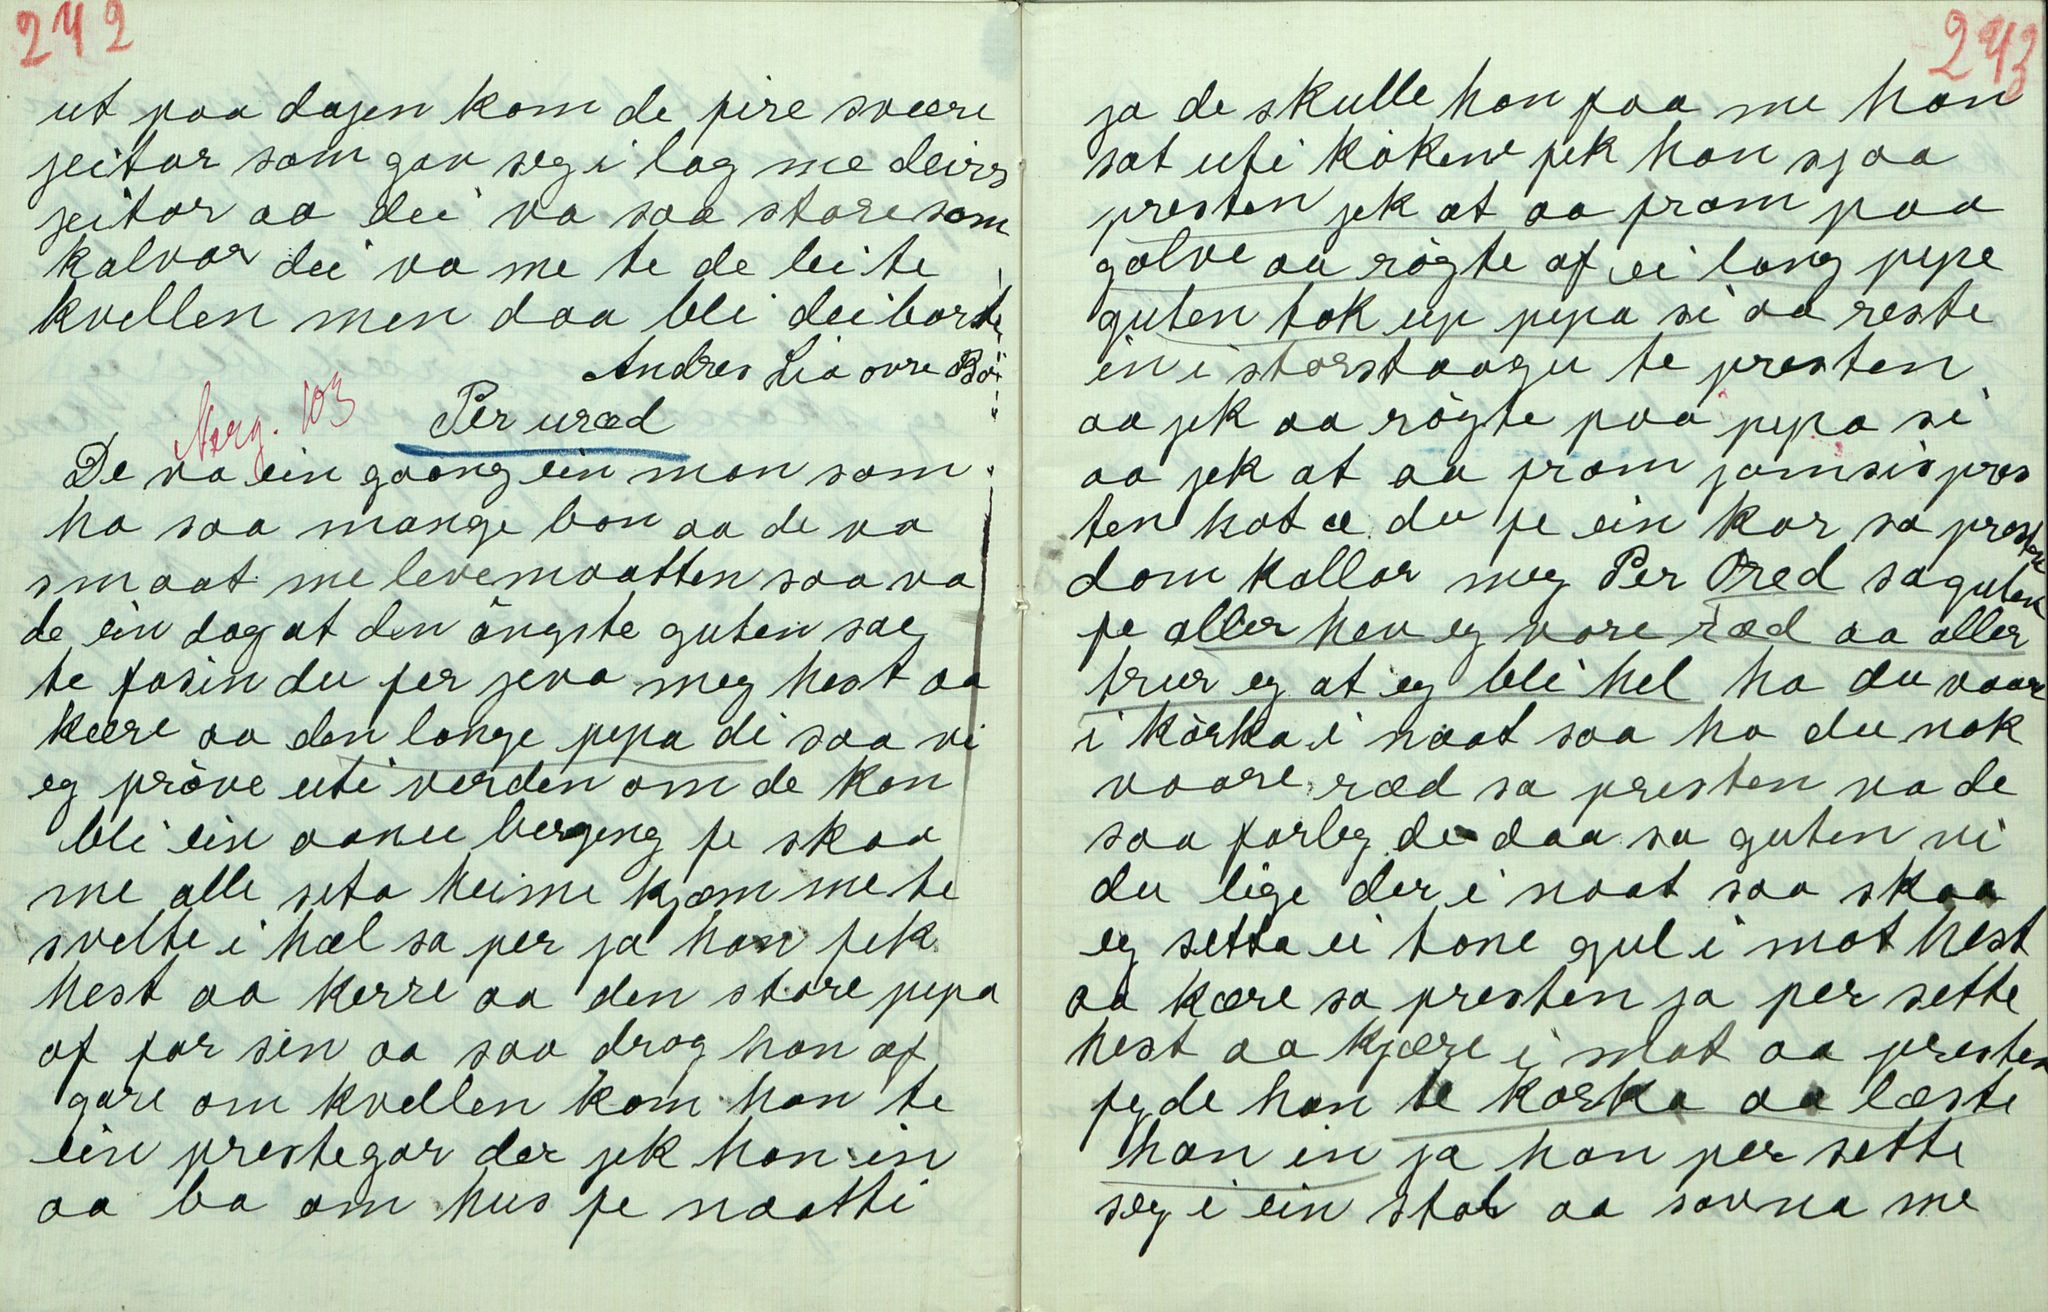 242
ut paa dagen kom de fire svære
jeitar som gav seg i lag me deirs
jeitar aa dei va saa store som
kalvar dei va me te de lei te
kvellen men daa blei dei borte
Andres Lia øvre Bø
Norg. 103
Per uræd
De va ein gaang ein man som
ha saa mange bon aa de va
smaat me levemaatten saa va
de ein dag at den öngste guten sae
te farsin du fer jeva meg hest aa
kære aa den lange pepa di saa vi
eg pröve uti verden om de kan
bli ein aanu bergeng fe skaa
me alle seta heime kjæm me te
svelte i hæl sa per ja han fek
hest aa kerre aa den store pepa
af far sin aa saa drog han af
gare om kvellen kom han te
ein prestegar der jek han in
aa ba om hus fe naatti
243
ja de skulle han faa me han
sat uti köken jek han sjaa
presten jek at aa fram paa
golve aa rögte af ei lang pepe
guten tok up pepa si aa reste
in i storstaagu te presten
aa jek aa rögte paa pepa si
aa jek at aa fram jamsis pres
ten hot æ du fe ein kar sa presten
dom kallar meg Per Oræd sa guten
fe aller hev eg vore ræd aa aller
trur eg at eg bli hel ha du vaar
i körka i naat saa ha du nok
vaare ræd sa presten va de
saa farleg de daa sa guten vi
du lige der i naat saa skaa
eg setta ei tone gul i mot hest
aa kære sa presten ja per sette
hest aa kjære i mot aa presten
fegde han te körka aa læste
han in ja han per sette
seg i ein stol aa sovna me